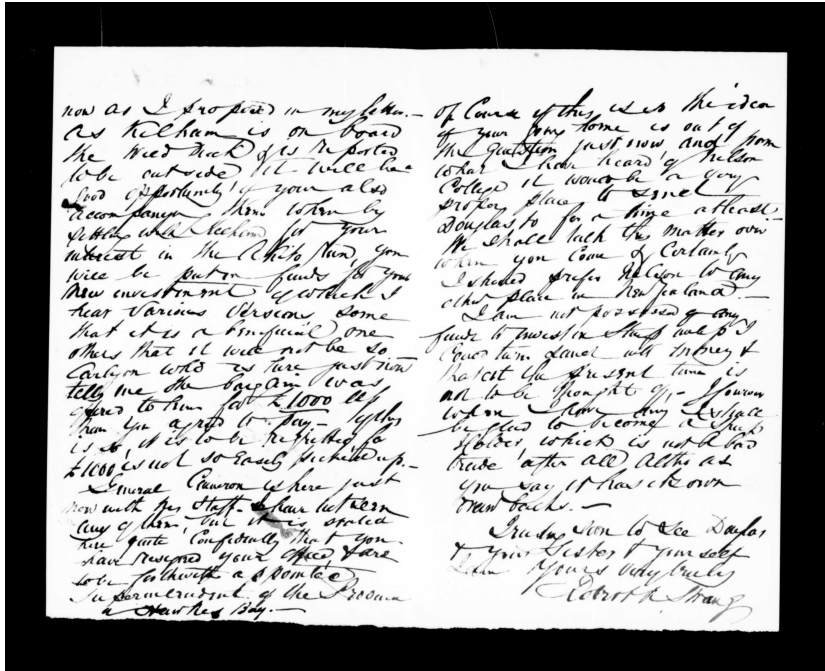 now as I proposed in my letter. —
as Kelham is on board
the Weed Duck & is reported
to be outside it will be a
good opportunity if you also
accompany them when by
settling with Kelham for your
interest in the Ahito Run, you
will be put in funds for your
new investment of which I
hear various versions some
that it is a beneficial one
others that it will not be so —
Carlyon who is here just now
tells me the bargain was
offered to him for £1000 less
than you agreed to pay. — If this
is so, it is to be regretted for
£1000 is not so easily picked up. —
General Cameron is here just
now with his Staff. I have not seen
any of them but it is stated
here quite confidently that you
have resigned your office & are
to be forthwith appointed
Superintendent of the Province
of Hawkes Bay. —
of Course if this is so the idea
of your going home is out of
the question just now and from
what I have heard of Nelson
College it would be a very
proper place to send
Douglas to for a time at least —
We shall talk this matter over
when you come & Certainly
I should prefer Nelson to any
other place in New Zealand. —
I am not possessed of any
funds to invest in Sheep unless I
could turn Land into money &
that at the present time is
not to be thought of, — However
when I have any I shall
be glad to become a Sheep
Holder which is not a bad
trade after all Altho as
you say it has its own
drawbacks. —
Trusting soon to see Douglas
& your Sister & yourself
I am Yours very truly
Robert R. Strang